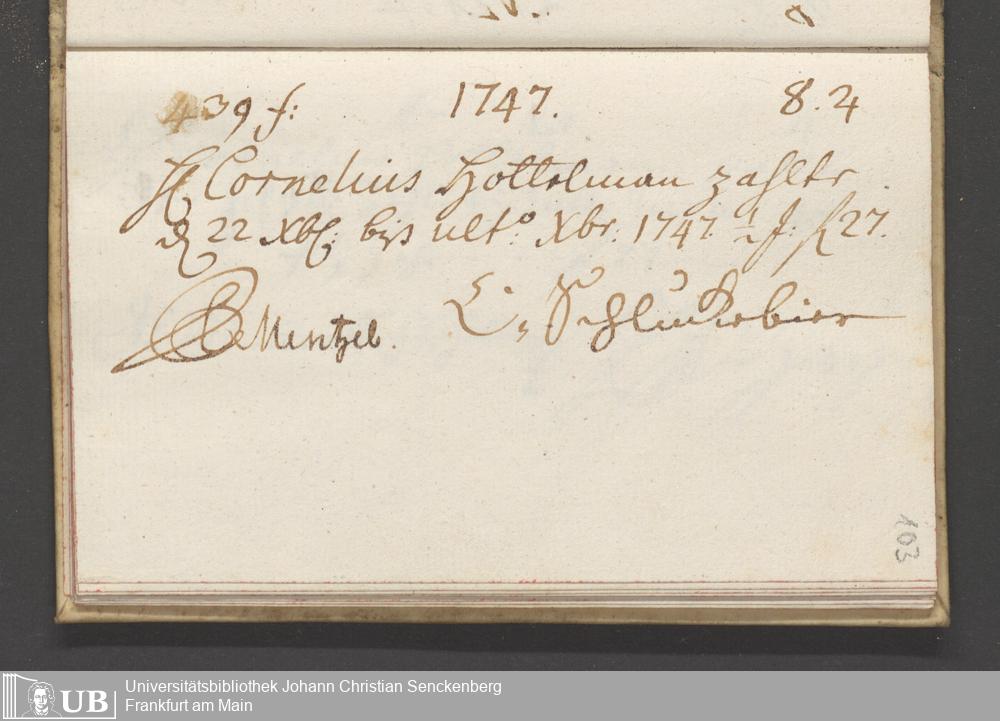 439 f: 1747. 8.24
H Cornelius Hottelman zahlte
d 22 Xbr: biß ult.º Xbr: 1747 1 J: f 27.
Mentzel. L. Schluckebier
103
UB Universitätsbibliothek Johann Christian Senckenberg
Frankfurt am Main